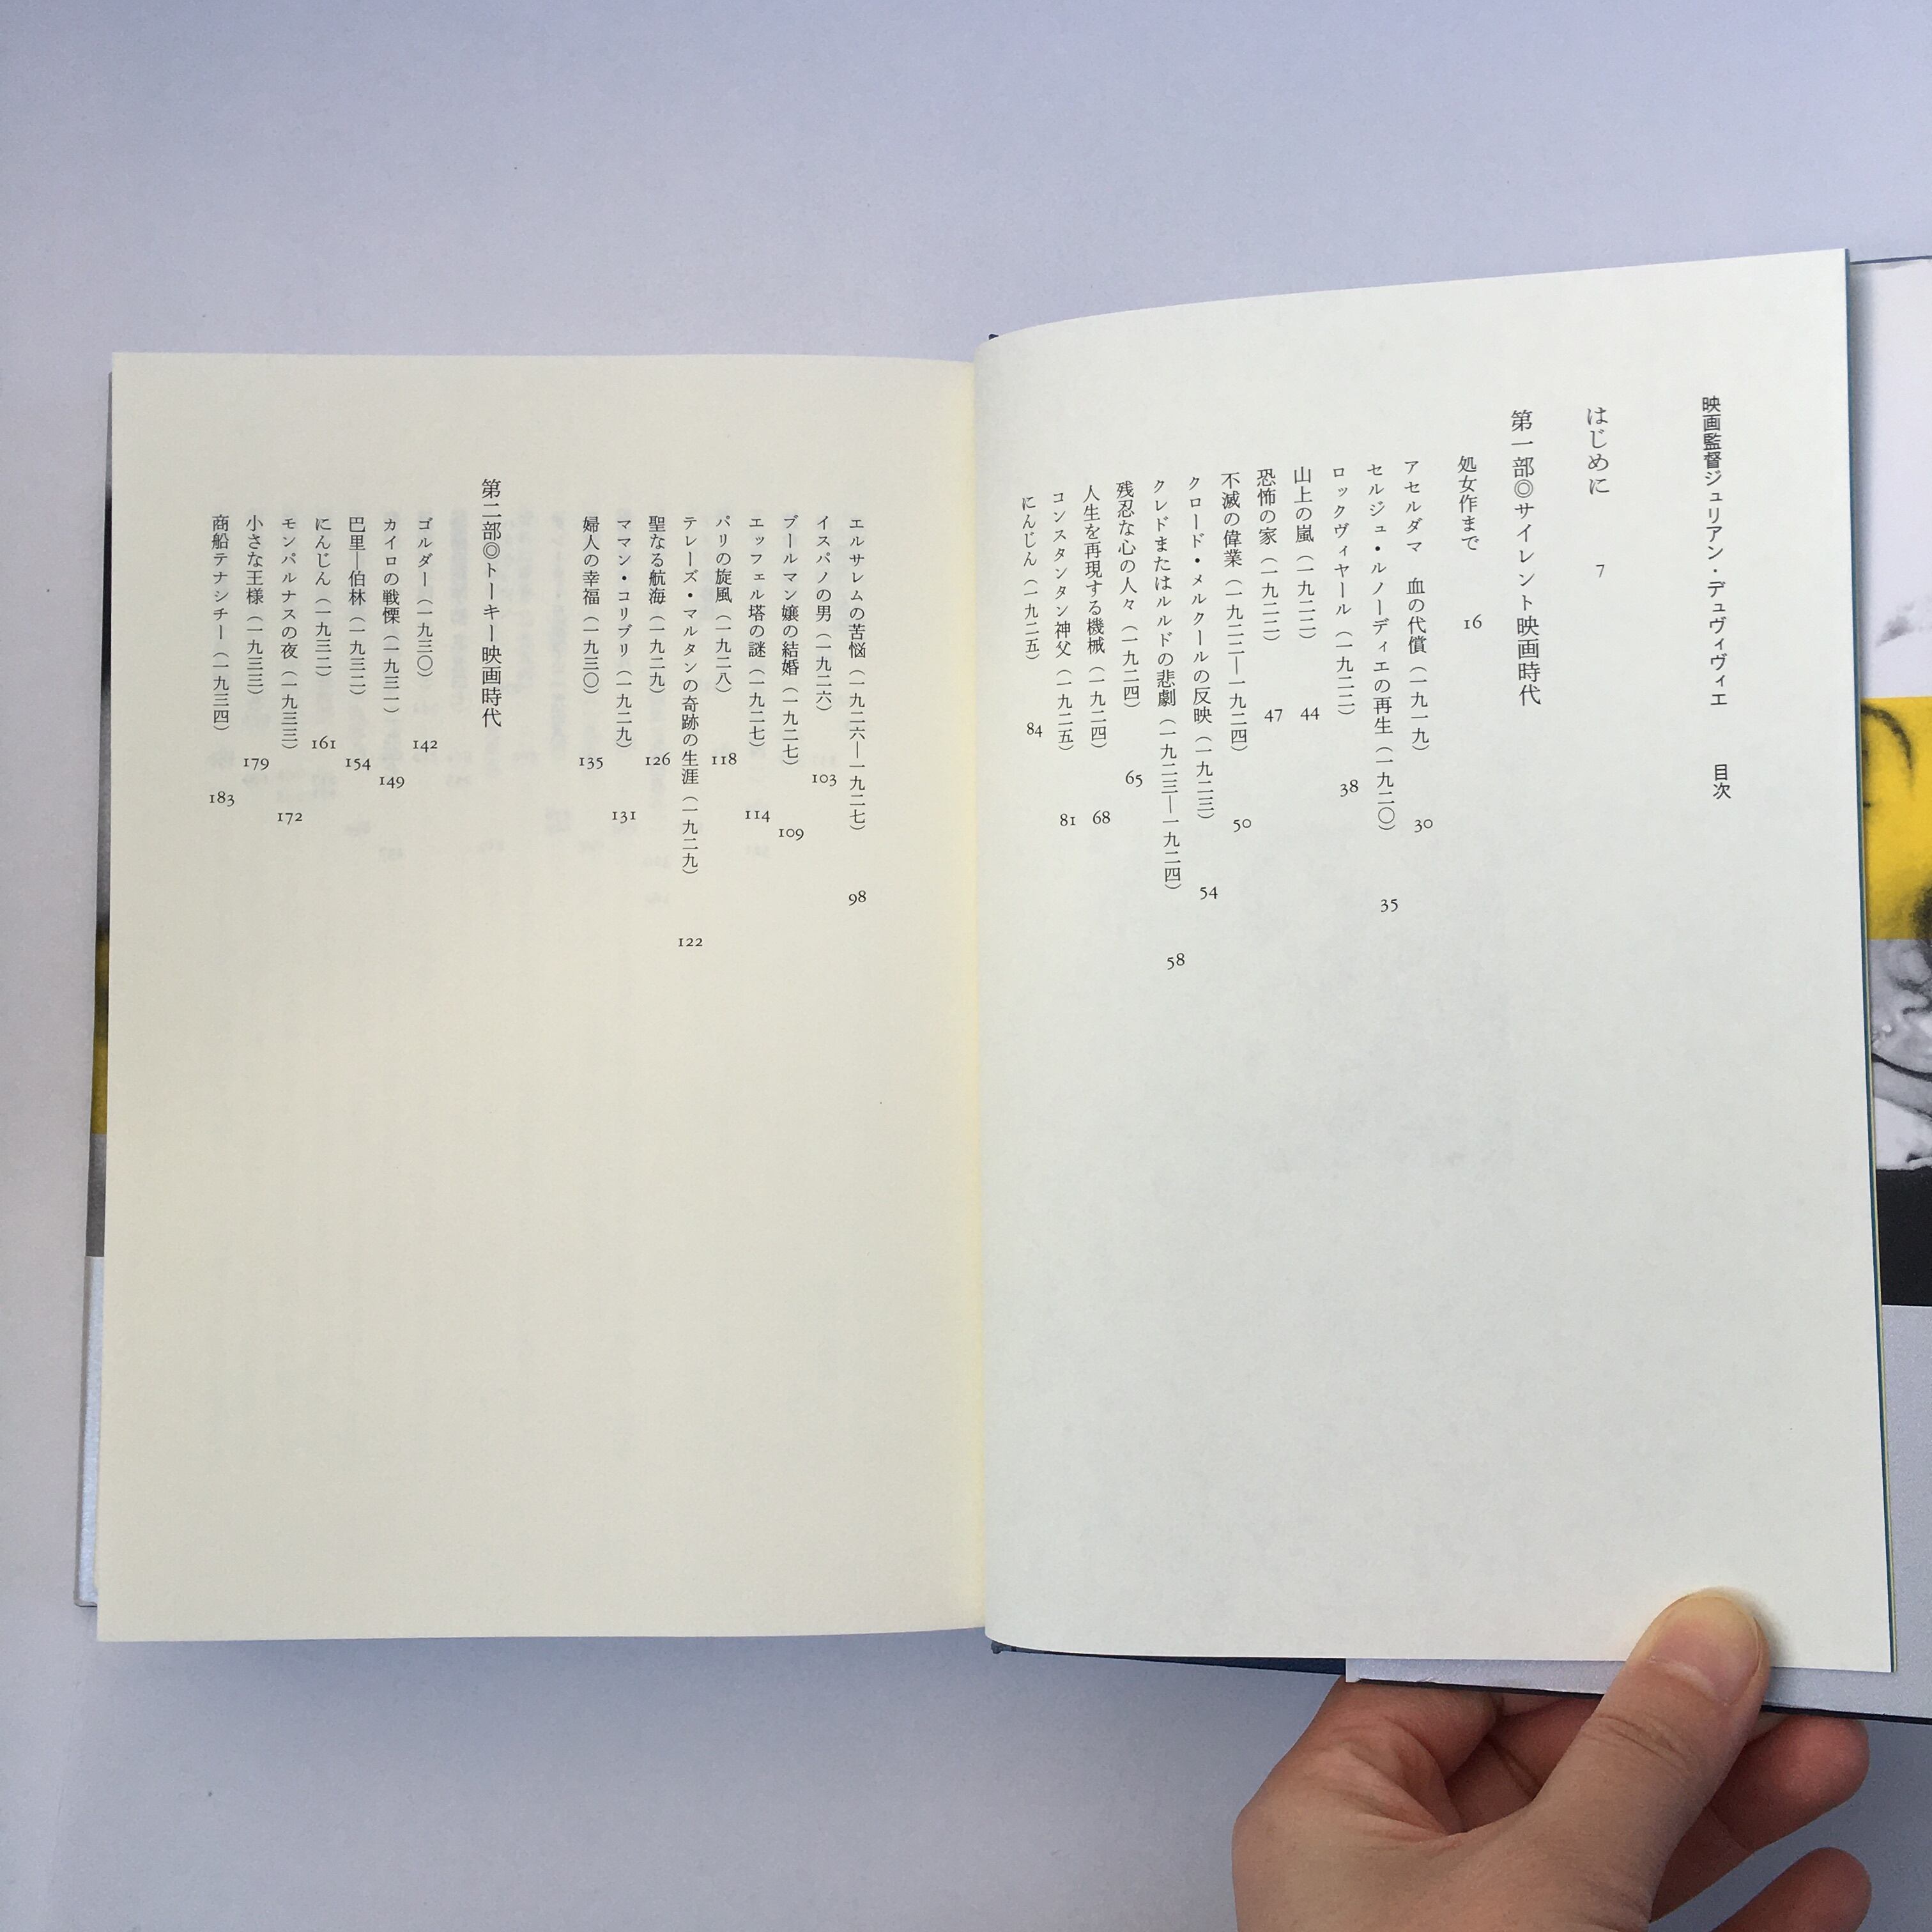 映画監督ジュリアン・デュヴィヴィエ 目次
はじめに 7
第一部◎サイレント映画時代
処女作まで 16
アセルダマ 血の代償（一九一九） 30
セルジュ・ルノーディエの再生（一九二〇） 35
ロックヴィヤール（一九二二） 38
山上の嵐（一九二二） 44
恐怖の家（一九二二） 47
不滅の偉業（一九二二―一九二四） 50
クロード・メルクールの反映（一九二三） 54
クレドまたはルルドの悲劇（一九二三―一九二四） 58
残忍な心の人々（一九二四） 65
人生を再現する機械（一九二四） 68
コンスタンタン神父（一九二五） 81
にんじん（一九二五） 84
エルサレムの苦悩（一九二六―一九二七） 98
イスパノの男（一九二六） 103
ブールマン嬢の結婚（一九二七） 109
エッフェル塔の謎（一九二七） 114
パリの旋風（一九二八） 118
テレーズ・マルタンの奇跡の生涯（一九二九） 122
聖なる航海（一九二九） 126
ママン・コリブリ（一九二九） 131
婦人の幸福（一九三〇） 135
第二部◎トーキー映画時代
ゴルダー（一九三〇） 142
カイロの戦慄（一九三一） 149
巴里―伯林（一九三二） 154
にんじん（一九三二） 161
モンパルナスの夜（一九三三） 172
小さな王様（一九三三） 179
商船テナシチー（一九三四） 183